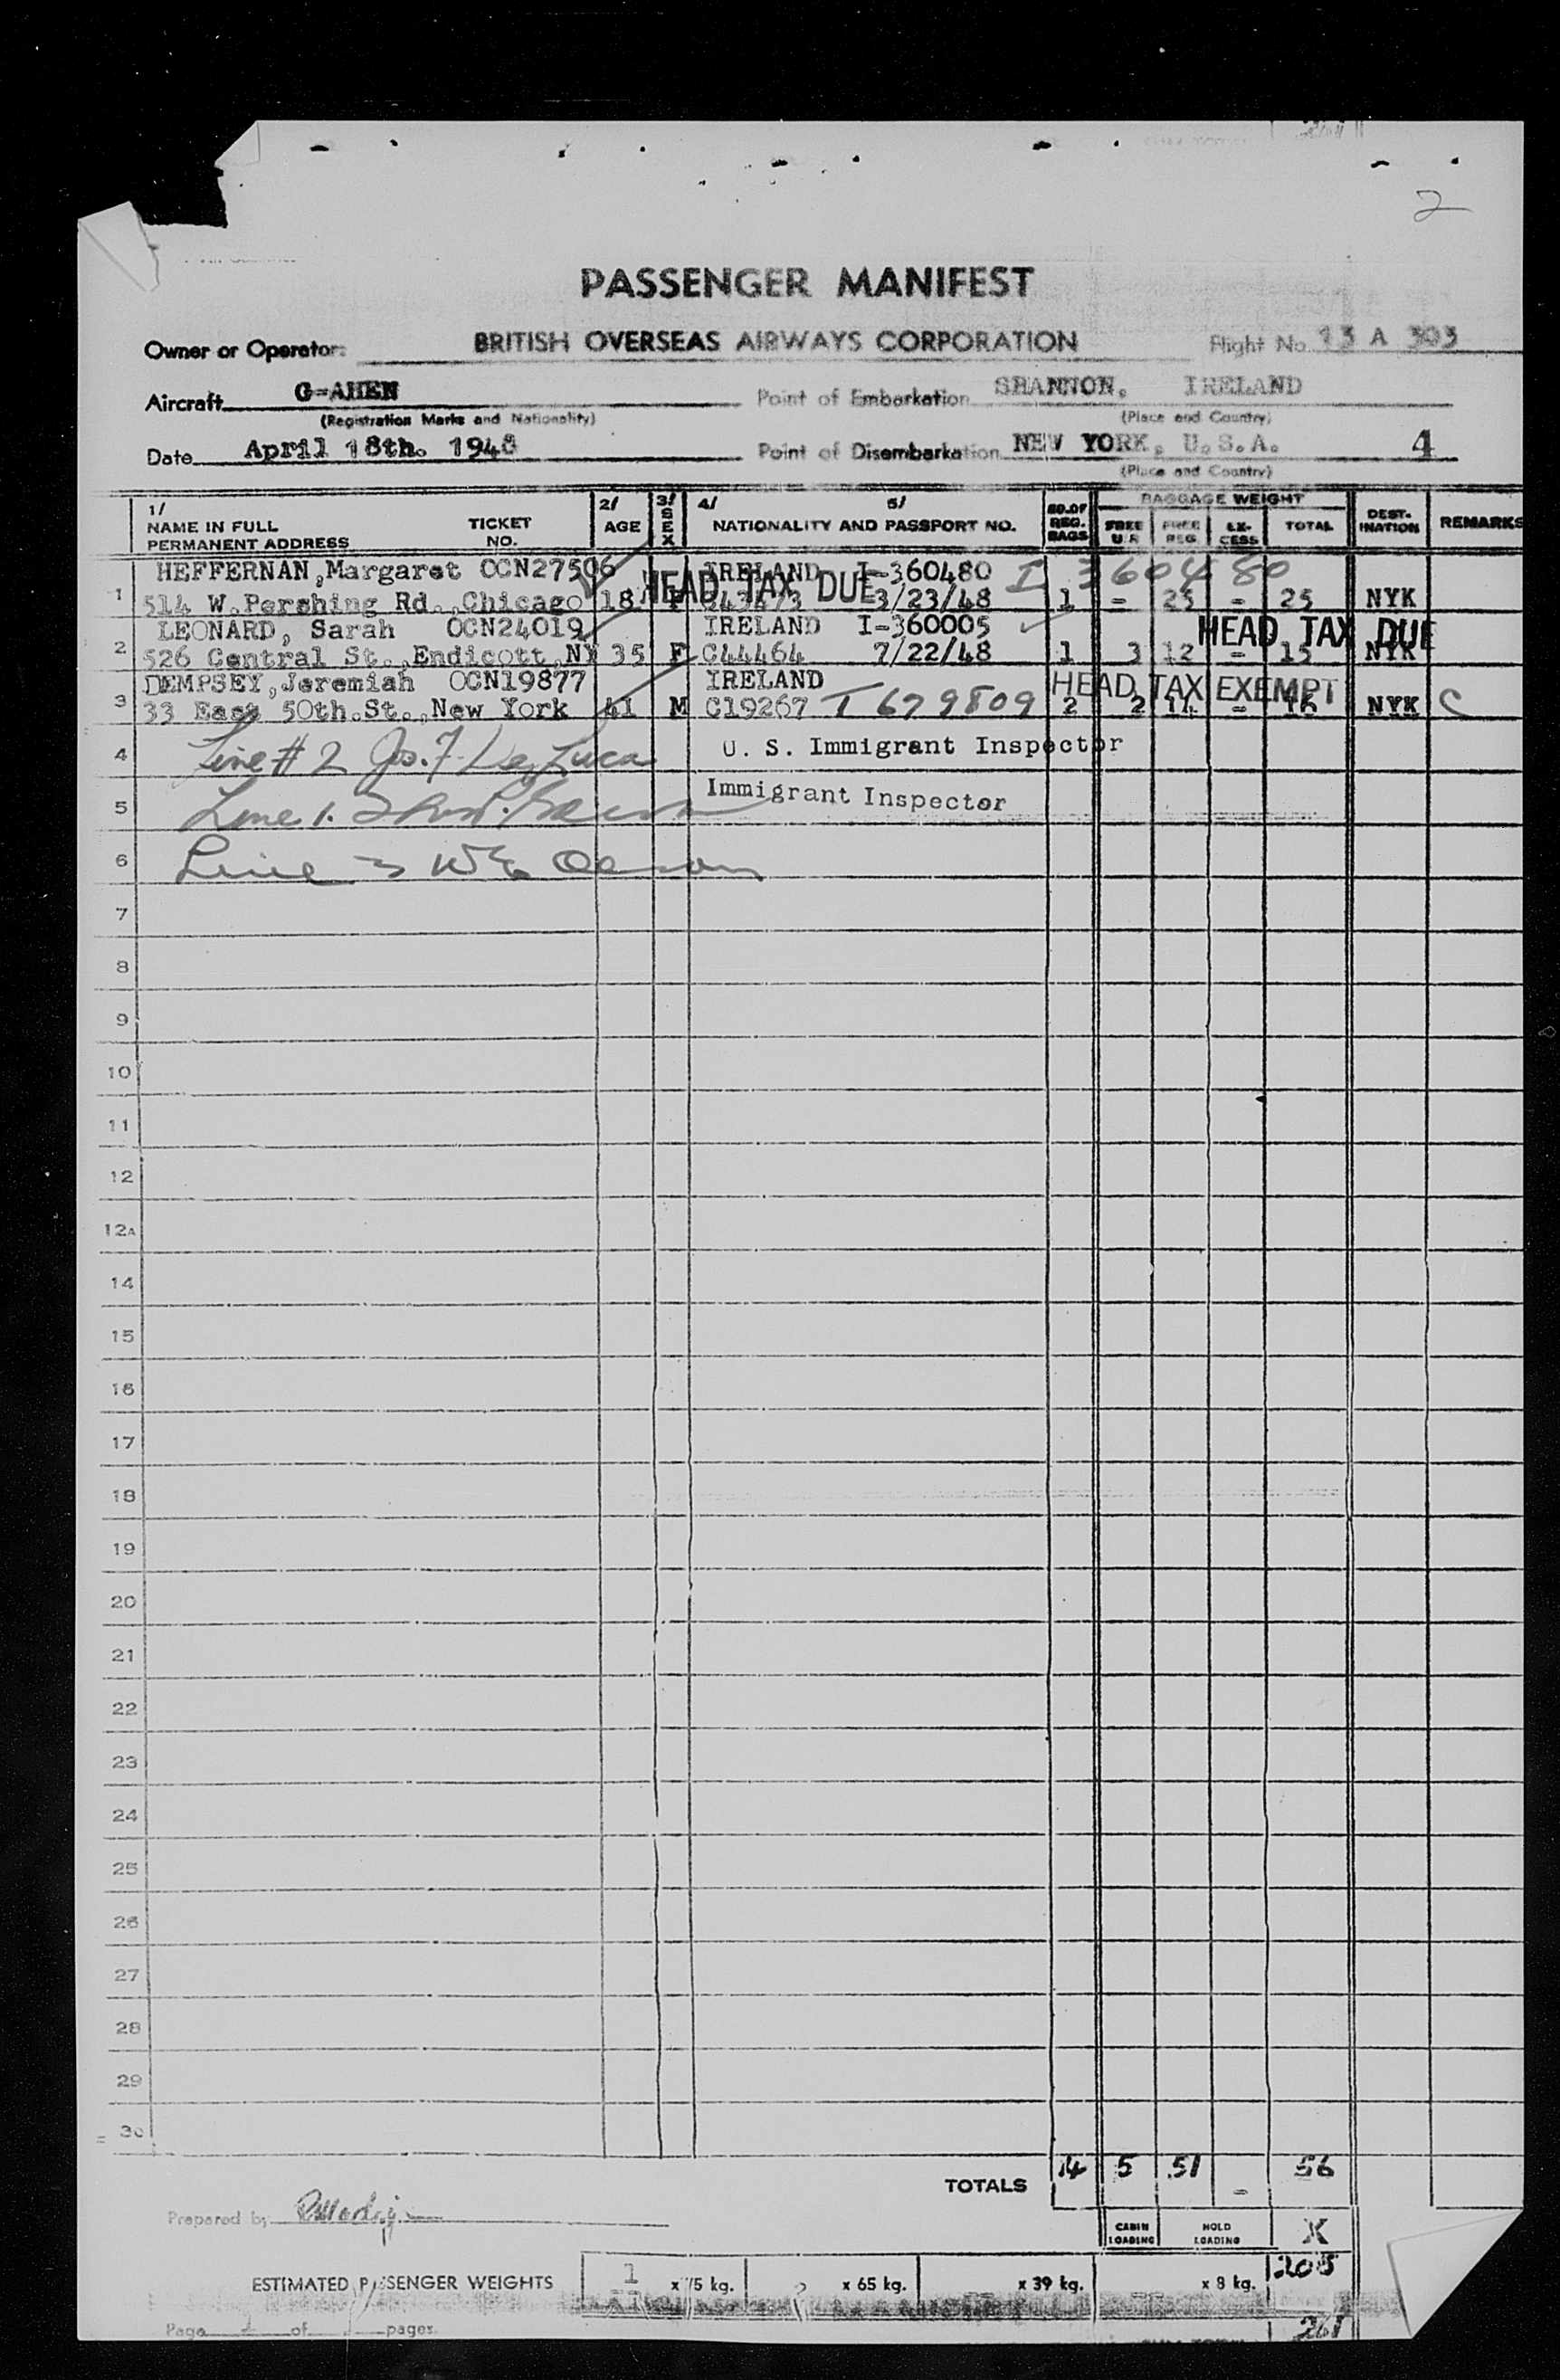 2
PASSENGER MANIFEST
Owner or Operator: BRITISH OVERSEAS AIRWAYS CORPORATION Flight No. 13 A 303
Aircraft G-AHEN Point of Embarkation SHANNON, IRELAND
(Registration Marks and Nationality) (Place and Country)
Date April 18th. 1948 Point of Disembarkation NEW YORK, U.S.A. 4
(Place and Country)
1/ 2/ 3/ 4/ 5/ NO.OF REG. BAGS BAGGAGE WEIGHT DEST-INATION REMARKS
NAME IN FULL TICKET AGE SEX NATIONALITY AND PASSPORT NO. FREE FREE EX- TOTAL
PERMANENT ADDRESS NO. REG. CESS
HEFFERNAN,Margaret OCN27506 IRELAND I-360480 I 360480
1 514 W.Pershing Rd.,Chicago 18 HEAD TAX DUE 3/23/48 1 - 25 - 25 NYK
LEONARD, Sarah OCN24019 IRELAND I-360005 HEAD TAX DUE
2 526 Central St.,Endicott,NY 35 F C44464 7/22/48 1 3 12 - 15 NYK
DEMPSEY,Jeremiah OCN19877 IRELAND HEAD TAX EXEMPT
3 33 East 50th.St.,New York 41 M C19267 T 679809 2 2 14 - 16 NYK C
4 Line # 2 Jos. F. De Luca U. S. Immigrant Inspector
5 Line 1. Immigrant Inspector
6 Line 3
7
8
9
10
11
12
12A
14
15
16
17
18
19
20
21
22
23
24
25
26
27
28
29
30
TOTALS 4 5 51 - 56
Prepared by
CABIN LOADING HOLD LOADING X
ESTIMATED PASSENGER WEIGHTS 1 x 75 kg. 2 x 65 kg. x 39 kg. x 8 kg. 205
Page of pages 261